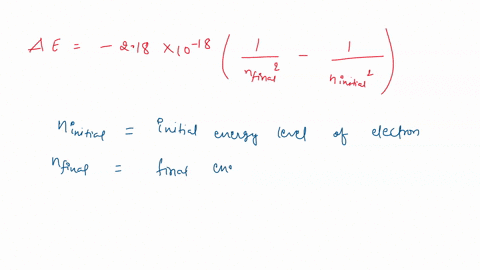 ΔE = - 2.18 × 10^-18 ( 1 / n_final^2 - 1 / n_initial^2 )
n_initial = initial energy level of electron
n_final = final en